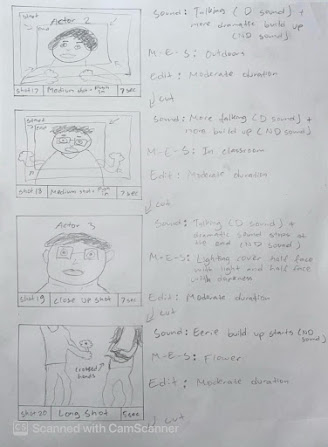 shot
Actor 2
shot 17 Medium shot - Push in 7 sec
Sound: Talking (D sound) +
more dramatic build up
(ND sound)
M-E-S: Outdoors
Edit: Moderate duration
cut
shot 18 Medium shot - Push in 7 sec
Sound: More talking (D sound) +
more build up (ND sound)
M-E-S: In classroom
Edit: Moderate duration
cut
Actor 3
shot 19 Close up shot 7 sec
Sound: Talking (D sound) +
dramatic sound stops at
the end (ND sound)
M-E-S: Lighting cover half face
with light and half face
with darkness
Edit: Moderate duration
cut
hands
shot 20 Long shot 5 sec
Sound: Eerie build up starts (ND
sound)
M-E-S: Flower
Edit: Moderate duration
cut
CS Scanned with CamScanner